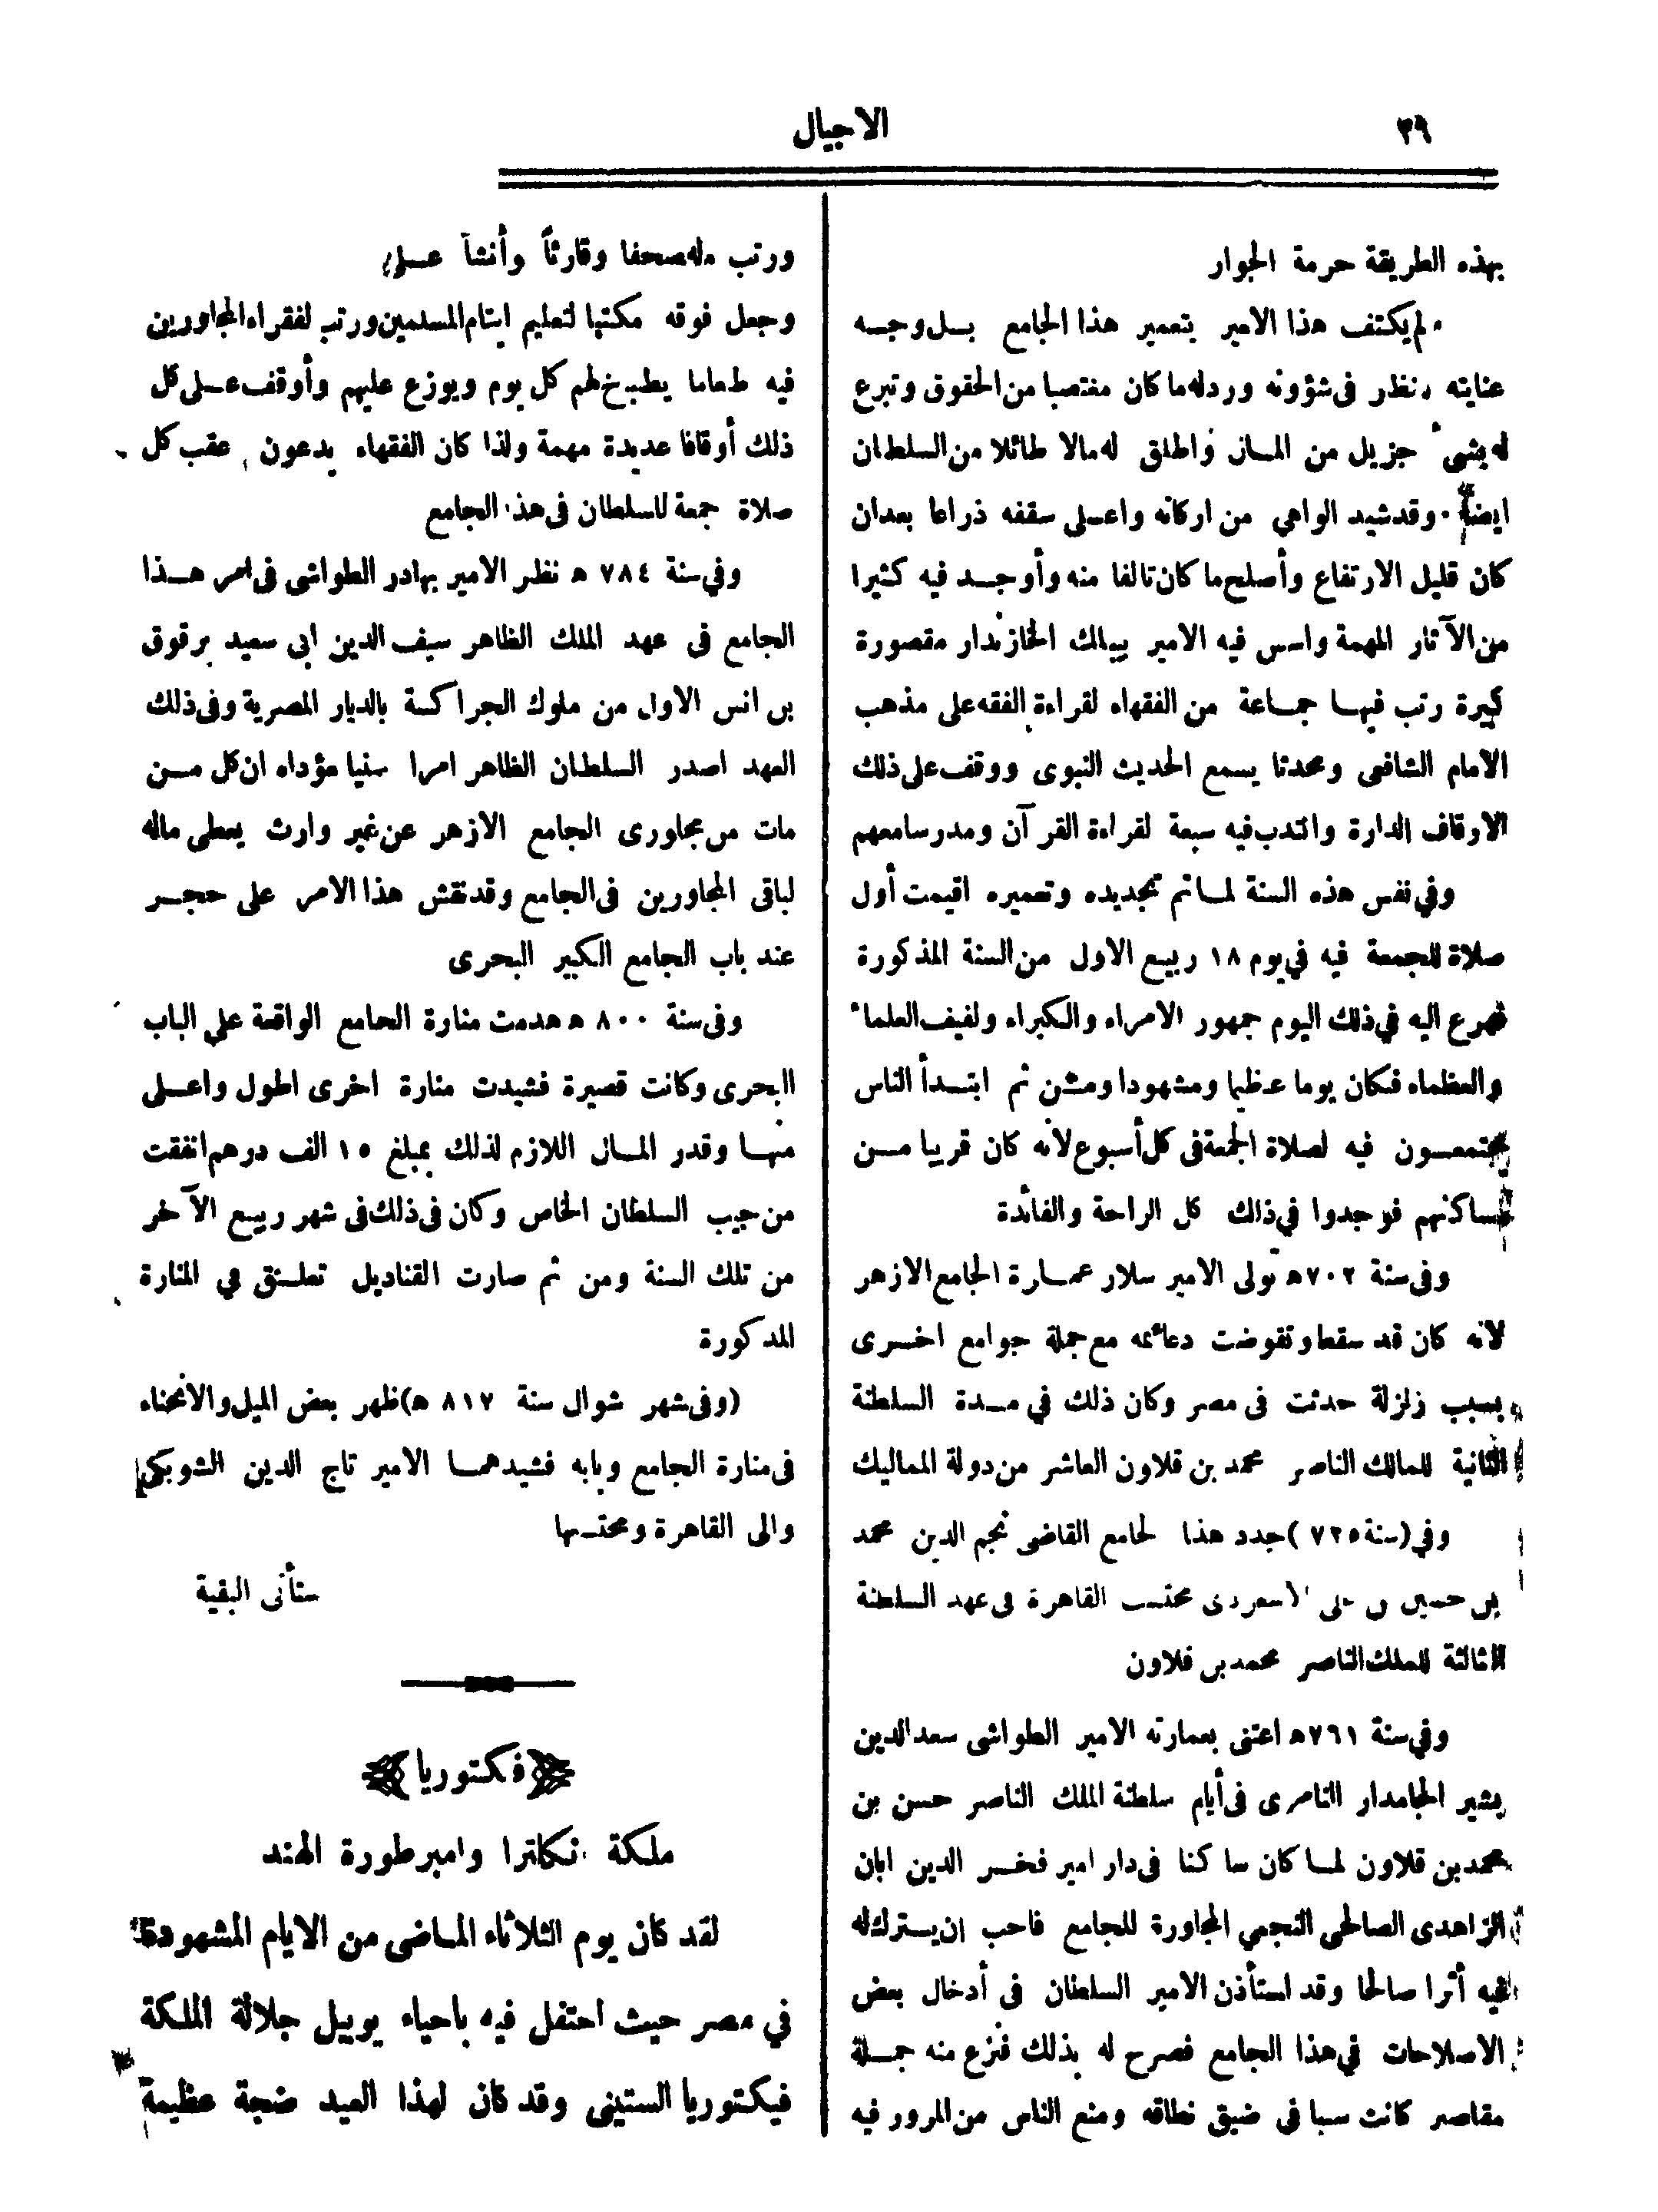 ٣٩
الاجيال
بهذه الطريقة حرمة الجوار
ولم يكتف هذا الامير بتعمير هذا الجامع بل وجه
عنايته ونظر فى شؤونه ورد له ما كان مغتصبا من الحقوق وتبرع
له بشىء جزيل من المال واطلق له مالا طائلا من السلطان
ايضا. وقد شيد الواهي من اركانه واعلى سقفه ذراعا بعد ان
كان قليل الارتفاع وأصلح ما كان تالفا منه وأوجد فيه كثيرا
من الآثار المهمة واسس فيه الامير بيبالك الخازندار مقصورة
كبيرة رتب فيها جماعة من الفقهاء لقراءة الفقه على مذهب
الامام الشافعى ومحدثا يسمع الحديث النبوى ووقف على ذلك
الاوقاف الدارة وانتدب فيه سبعة لقراءة القرآن ومدرسا معهم
وفي نفس هذه السنة لما تم تجديده وتعميره اقيمت أول
صلاة للجمعة فيه في يوم ١٨ ربيع الاول من السنة المذكورة
فهرع اليه في ذلك اليوم جمهور الامراء والكبراء ولفيف العلماء
والعظماء فكان يوما عظيما ومشهودا ومن ثم ابتدأ الناس
يجتمعون فيه لصلاة الجمعة فى كل أسبوع لانه كان قريبا من
مساكنهم فوجدوا في ذلك كل الراحة والفائدة
وفى سنة ٧٠٢ ه تولى الامير سلار عمارة الجامع الازهر
لانه كان قد سقط وتقوضت دعائمه مع جملة جوامع اخرى
بسبب زلزلة حدثت فى مصر وكان ذلك في مدة السلطنة
الثانية للمالك الناصر محمد بن قلاون العاشر من دولة المماليك
وفي (سنة ٧٢٥) جدد هذا لجامع القاضى نجم الدين محمد
بن حسين بن على الاسعردى محتسب القاهرة فى عهد السلطنة
الثالثة للملك الناصر محمد بن قلاون
وفي سنة ٧٦١ ه اعتنى بعمارته الامير الطواشى سعد الدين
بشير الجامدار الناصرى فى أيام سلطنة الملك الناصر حسن بن
محمد بن قلاون لما كان ساكنا فى دار امير فخر الدين ابان
الزاهدى الصالحى النجمي المجاورة للجامع فاحب ان يترك له
فيه أثرا صالحا وقد استأذن الامير السلطان فى أدخال بعض
الاصلاحات في هذا الجامع فصرح له بذلك فنزع منه جملة
مقاصر كانت سببا فى ضيق نطاقه ومنع الناس من المرور فيه
ورتب له مصحفا وقارئاً وأنشأ
وجعل فوقه مكتبا لتعليم ايتام المسلمين ورتب لفقراء المجاورين
فيه طعاما يطبخ لهم كل يوم ويوزع عليهم وأوقف على كل
ذلك أوقافا عديدة مهمة ولذا كان الفقهاء يدعون عقب كل
صلاة جمعة للسلطان فى هذا الجامع
وفي سنة ٧٨٤ ه نظر الامير بهادر الطواشى فى امر هذا
الجامع فى عهد الملك الظاهر سيف الدين ابى سعيد برقوق
بن انس الاول من ملوك الجراكسة بالديار المصرية وفى ذلك
العهد اصدر السلطان الظاهر امرا سنيا مؤداه ان كل من
مات من مجاورى الجامع الازهر عن غير وارث يعطى ماله
لباقى المجاورين فى الجامع وقد نقش هذا الامر على حجر
عند باب الجامع الكبير البحرى
وفى سنة ٨٠٠ ه هدمت منارة الجامع الواقعة على الباب
البحرى وكانت قصيرة فشيدت منارة اخرى اطول واعلى
منها وقدر المال اللازم لذلك بمبلغ ١٥ الف درهم انفقت
من جيب السلطان الخاص وكان فى ذلك فى شهر ربيع الآخر
من تلك السنة ومن ثم صارت القناديل تعلق في المنارة
المذكورة
(وفى شهر شوال سنة ٨١٧ ه) ظهر بعض الميل والانحناء
فى منارة الجامع وبابه فشيدهما الامير تاج الدين الشوبكى
والى القاهرة ومحتسبها
ستأتى البقية
فكتوريا
ملكة انكلترا وامبرطورة الهند
لقد كان يوم الثلاثاء الماضى من الايام المشهودة
في مصر حيث احتفل فيه باحياء يوبيل جلالة الملكة
فيكتوريا الستينى وقد كان لهذا العيد ضجة عظيمة